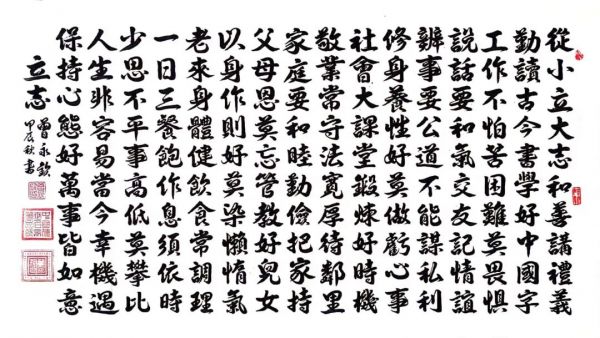 從小立大志和善講禮義
勤讀古今書學好中國字
工作不怕苦困難莫畏懼
說話要和氣交友記情誼
辦事要公道不能謀私利
修身養性好莫做虧心事
社會大課堂鍛煉好時機
敬業常守法寬厚待鄰里
家庭要和睦勤儉把家持
父母恩莫忘管教好兒女
以身作則好莫染懶惰氣
老來身體健飲食常調理
一日三餐飽作息須依時
少思不平事高低莫攀比
人生非容易當今幸機遇
保持心態好萬事皆如意
立志
甲辰秋書 曾永欽